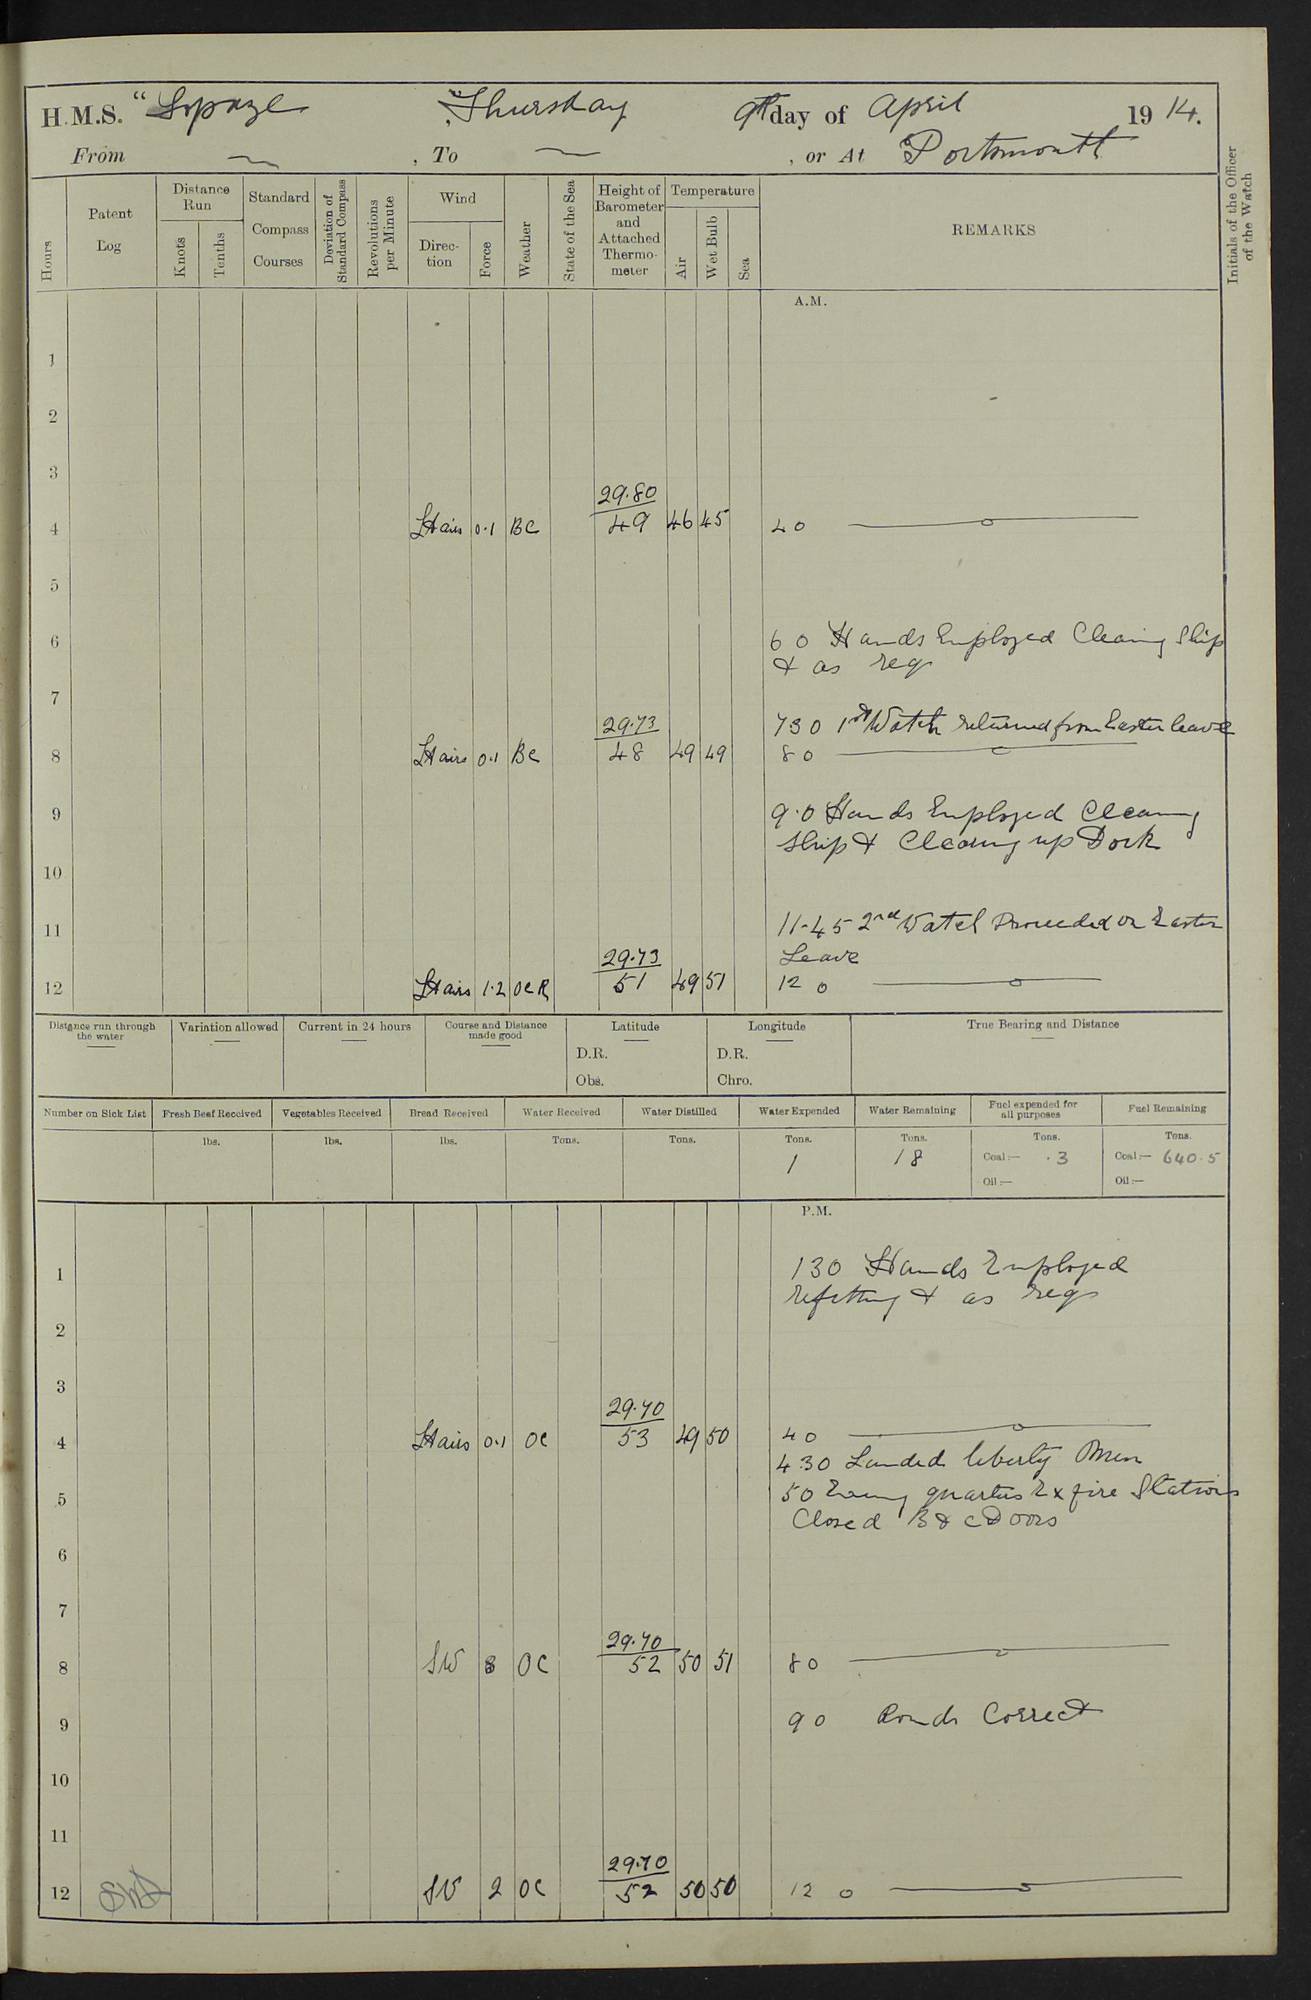 H.M.S. "Topaze", Thursday 9th day of April 1914.
From ~, To ~, or At Portsmouth
Hours
Patent Log
Distance Run
Knots
Tenths
Standard Compass Courses
Deviation of Standard Compass
Revolutions per Minute
Wind
Direction
Force
Weather
State of the Sea
Height of Barometer and Attached Thermometer
Temperature
Air
Wet Bulb
Sea
REMARKS
Initials of the Officer of the Watch
A.M.
1
2
3
4 Lt airs 0.1 BC 29.80 49 46 45 4 0
5
6 6 0 Hands Employed Cleaning Ship
& as req
7 7 30 1st Watch returned from Easter leave
8 Lt airs 0.1 BC 29.73 48 49 49 8 0
9 9.0 Hands Employed Cleaning
Ship & Clearing up Dock
10
11 11.45 2nd Watch Proceeded on Easter
Leave
12 Lt airs 1.2 OCR 29.73 51 49 51 12 0
Distance run through the water
Variation allowed
Current in 24 hours
Course and Distance made good
Latitude
D.R.
Obs.
Longitude
D.R.
Chro.
True Bearing and Distance
Number on Sick List
Fresh Beef Received lbs.
Vegetables Received lbs.
Bread Received lbs.
Water Received Tons.
Water Distilled Tons.
Water Expended Tons. 1
Water Remaining Tons. 18
Fuel expended for all purposes Tons.
Coal:— .3
Oil:—
Fuel Remaining Tons.
Coal:— 640.5
Oil:—
P.M.
1 1 30 Hands Employed
refitting & as req
2
3
4 Lt airs 0.1 OC 29.70 53 49 50 4 0
4.30 Landed liberty Men
5 5 0 Evening quarters Ex fire Stations
Closed B & C Doors
6
7
8 SW 3 OC 29.70 52 50 51 8 0
9 9 0 Rounds Correct
10
11
12 SW 2 OC 29.70 52 50 50 12 0